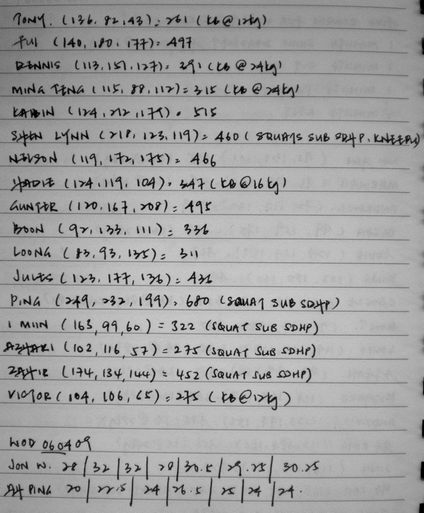 TONY. (136, 82, 43) = 261 (KB @ 12kg)
FUI (140, 180, 177) = 497
DENNIS (113, 151, 127) = 391 (KB @ 24kg)
MING TENG (115, 88, 112) = 315 (KB @ 24kg)
KAIBIN (124, 212, 179) = 515
SHEN LYNN (218, 123, 119) = 460 (SQUATS SUB SDHP, KNEEPU)
NELSON (119, 172, 175) = 466
HADIE (124, 119, 104) = 347 (KB @ 16kg)
GUNTER (120, 167, 208) = 495
BOON (92, 133, 111) = 336
LOONG (83, 93, 135) = 311
JULES (123, 177, 136) = 436
PING (249, 232, 199) = 680 (SQUAT SUB SDHP)
I MIIN (163, 99, 60) = 322 (SQUAT SUB SDHP)
AZHARI (102, 116, 57) = 275 (SQUAT SUB SDHP)
ZAHIR (174, 134, 144) = 452 (SQUAT SUB SDHP)
VICTOR (104, 106, 65) = 275 (KB @ 12kg)
WOD 060409
JON N. 28 | 32 | 32 | 28 | 30.5 | 29.25 | 30.25
AH PING 20 | 22.5 | 24 | 26.5 | 25 | 24 | 24.